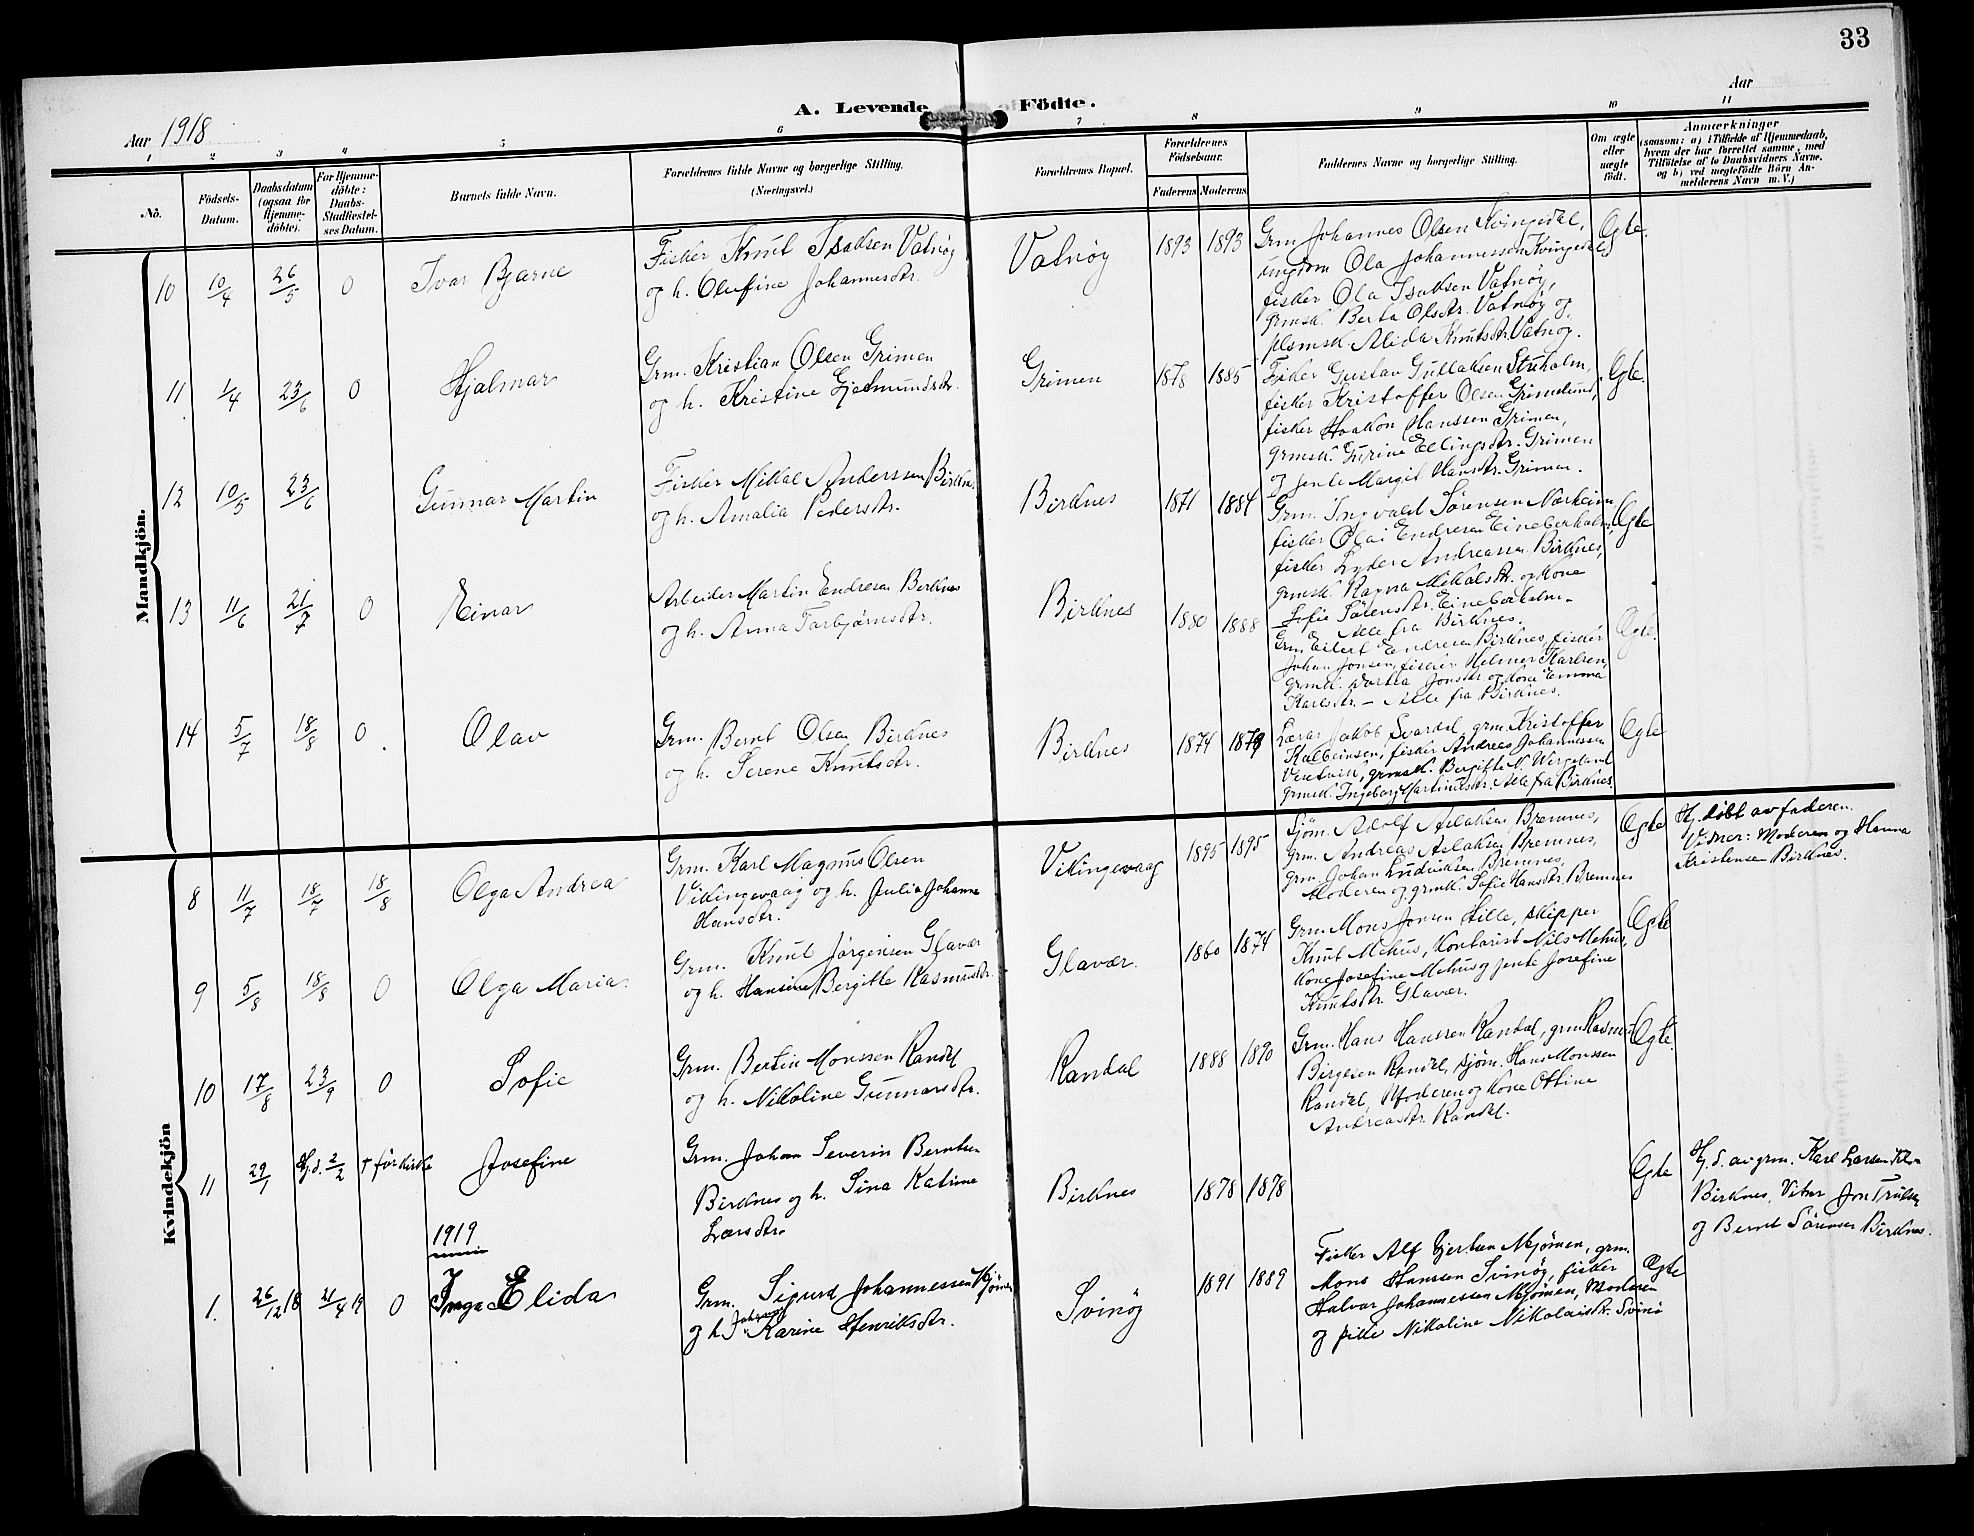 33
A. Levende Födte.
Aar 1918
Aar
1 2 3 4 5 6 7 8 9 10 11
No.
Födsels-
Datum.
Daabsdatum
(ogsaa for
Hjemme-
döbte).
For Hjemme-
döbte:
Daabs-
Stadfæstel-
ses Datum.
Barnets fulde Navn.
Forældrenes fulde Navne og borgerlige Stilling.
(Næringsvei.)
Forældrenes Bopæl.
Forældrenes
Födselsaar.
Faderens Moderens
Faddernes Navne og borgerlige Stilling.
Om ægte
eller
uægte
födt.
Anmærkninger
(saasom: a) i Tilfælde af Hjemmedaab,
hvem der har forrettet samme, med
Tilföielse af to Daabsvidners Navne,
og b) ved uægtefödte Börn An-
melderens Navn m. V.)
Mandkjön.
10 10/4 26/5 0 Ivar Bjarne
Fisker Knut Isaksen Vatnøy
og h. Olufine Johannesdtr.
Vatnøy 1893 1893
Grm Johannes Olsen Kvingedal,
ungdom Ola Johannessen Kvingedal,
fisker Ola Isaksen Vatnøy,
grmsk. Berta Olsdtr. Vatnøy og
Alida Knutsdtr Vatnøy.
Egte.
11 1/4 23/6 0 Hjalmar
Grm. Kristian Olsen Grimen
og h. Kristine Gjelmundsdtr.
Grimen 1878 1885
Fisker Gustav Gullaksen
fisker Kristoffer Olsen
fisker Haakon Hanssen Grimen,
grmsk. Gurine Ellingsdtr. Grimen
og jente Margit Hansdtr. Grimen.
Egte.
12 10/5 23/6 Gunnar Martin
Fisker Mikal Anderssen Birkn.
og h. Amalia Pedersdtr.
Birknes 1871 1884
Grm. Ingvald Sørensen
fisker Olai Endresen Eineberholm,
fisker Lyder Andreassen Birknes,
grmsk. Ragna Mikalsdtr. og kone
Sofie Sørensdtr. Eineberholm –
Alle fra Birknes.
Egte
13 11/6 21/7 0 Einar
Arbeider Martin Endresen Birknes
og h. Anna Torbjørnsdtr.
Birknes 1880 1888
Grm Eilert Endresen Birknes, fisker
Johan Jonsen, fisker Helmer Karlsen,
grmsk. Jonsdtr og kone Emma
Karlsdtr – Alle fra Birknes.
Egte.
14 5/7 18/8 0 Olav
Grm. Bernt Olsen Birknes
og h. Serene Knutsdtr.
Birknes 1874 1879
Lærar Jakob Svardal, grm Kristoffer
Kolbeinsen, fisker Andreas Johannessen
grmsk. Bergitte N. Wergeland
grmsk. Ingeborg Martinusdtr. Alle fra Birknes.
Egte
Kvindekjön
8 11/7 18/7 18/8 Olga Andrea
Grm. Karl Magnus Olsen
Vikingevaag og h. Julia Johanna
Hansdtr.
Vikingevaag 1895 1895
Sjøm. Adolf Aslaksen Bremnes,
Grm. Andreas Aslaksen Bremnes,
grm. Johan Ludviksen Bremnes,
Moderen og grmsk. Sofie Hansdtr. Bremnes
Egte
Hj. døbt av faderen.
Vitner: Moderen og Hanna
Kristensen Birknes.
9 5/8 18/8 0 Olga Maria
Grm. Knut Jørgensen Glavær
og h. Hansine Bergitte Rasmusdtr.
Glavær. 1860 1874
Grm. Mons Jonsen Hille, skipper
Knut Mehus, kontorist Nils Mehus,
kone Josefine Mehus og jente Josefine
Knutsdtr. Glavær.
Egte
10 17/8 23/9 0 Sofie
Grm. Bertin Monssen Randal
og h. Nikoline Gunnarsdtr.
Randal 1888 1890
Grm. Hans Hanssen Randal, grm Rasmus
Birgesen Randal, sjøm. Hans Monssen
Randal, Moderen og kone Ottine
Andreasdtr. Randal.
Egte.
11 29/1 Hj.d. 2/2 † før kirke Josefine
Grm. Johan Severin Berntsen
Birknes og h. Sina Katinna
Larsdtr.
Birknes 1878 1878
Egte
Hj. d. av grm. Karl Larsen
Birknes. Vitner Jon
og Bernt Sørensen Birknes.
1919
1. 26/12 18 21/4 19 0 Inga Elida
Grm. Sigurd Johannessen Mjømen
og h. Johanna Karine Henriksdtr.
Svinøy 1891 1889
Fisker Alf Gjertsen Mjømen, grm.
Mons Hanssen Svinøy, fisker
Halvor Johannessen Mjømen, Moderen
og pike Nikoline Nikolaisdtr. Svinø
Egte